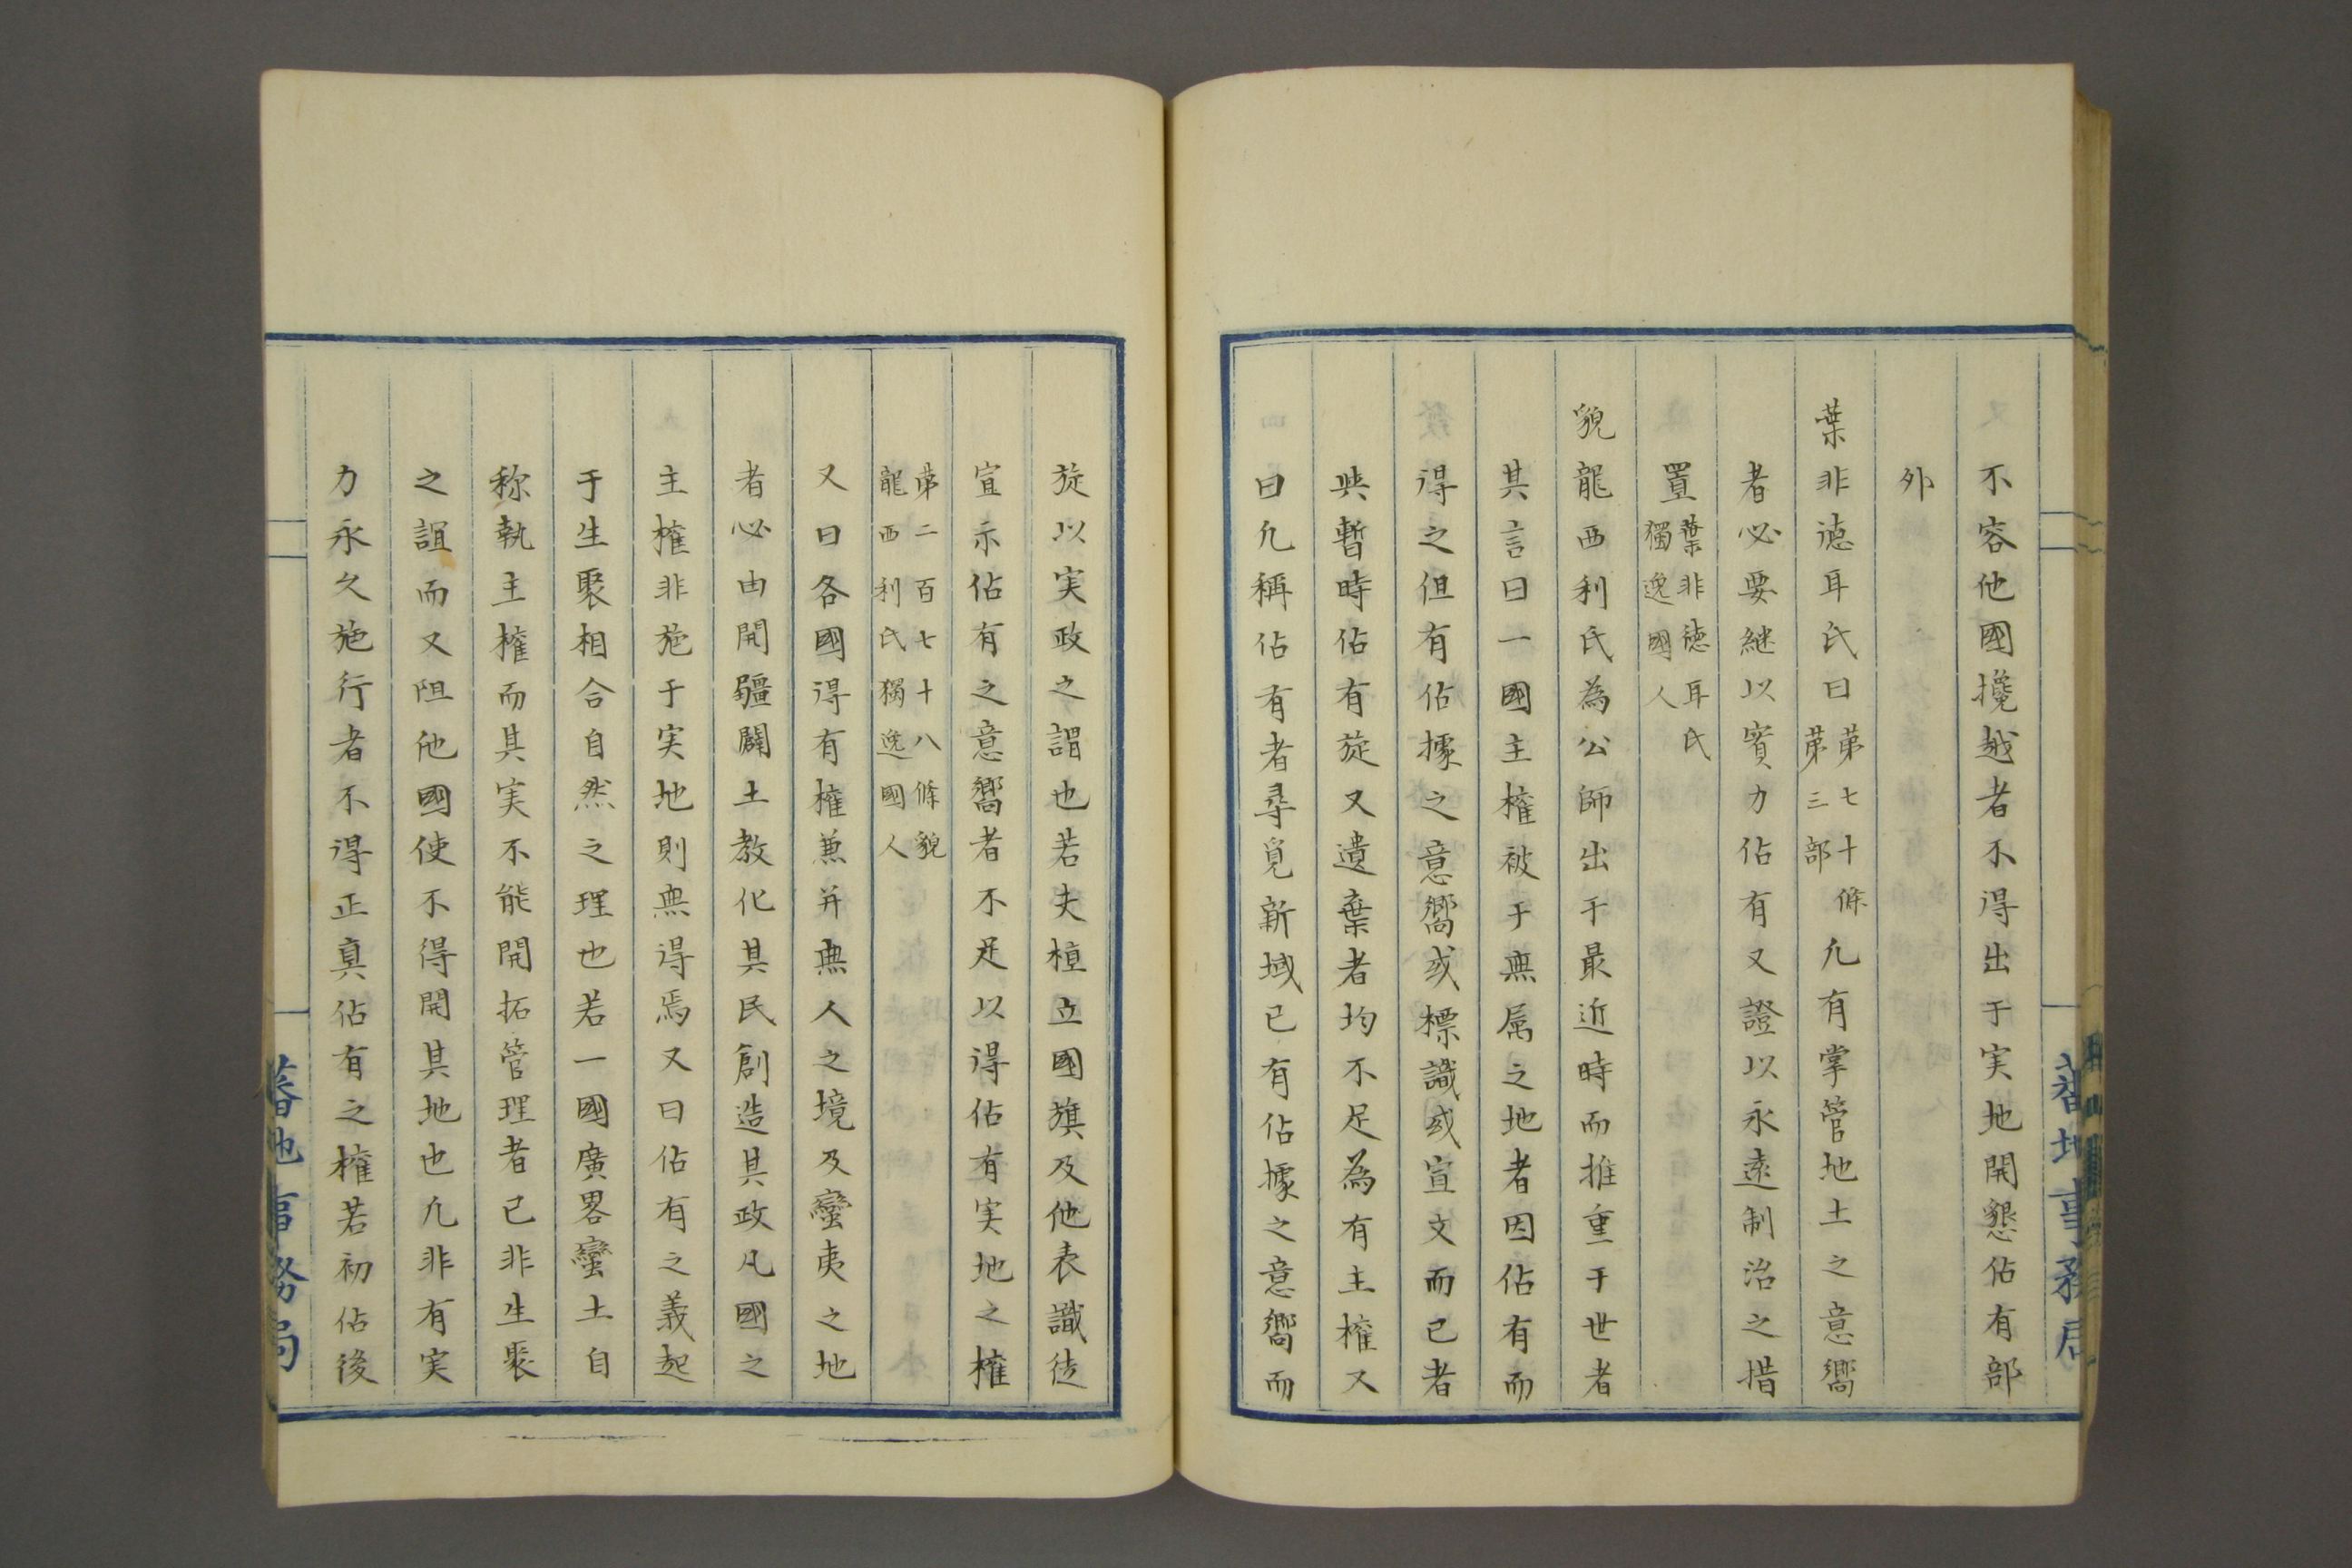 不容他國攙越者不得出于実地開懇佔有部
外
葉非德耳氏曰第七十條第三部凡有掌管地土之意嚮
者必要継以實力佔有又證以永遠制治之措
置葉非徳耳氏獨逸國人
貌龍西利氏為公師出于最近時而推重于世者
其言曰一國主権被于無属之地者因佔有而
得之但有佔據之意嚮或標識或宣文而已者
与暫時佔有旋又遺棄者均不足為有主権又
曰凡稱佔有者尋覓新域已有佔據之意嚮而
蕃地事務局
旋以実政之謂也若夫桓立國旗及他表識徒
宣示佔有之意嚮者不足以得佔有実地之権
第二百七十八條貌龍西利氏獨逸國人
又曰各國得有権兼并無人之境及蠻夷之地
者必由開疆闢土教化其民創造其政凡國之
主権非施于実地則無得焉又曰佔有之義起
于生聚相合自然之理也若一國廣畧蠻土自
称執主権而其実不能開拓管理者已非生聚
之誼而又阻他國使不得開其地也凡非有実
力永久施行者不得正真佔有之権若初佔後
蕃地事務局